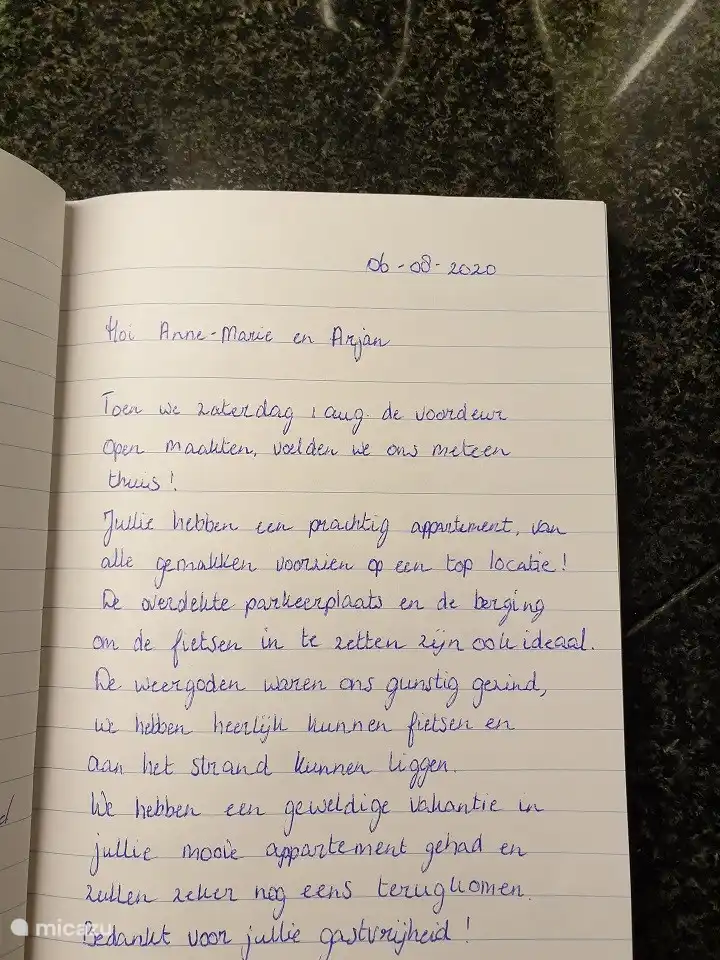 06-08-2020
Hoi Anne-Marie en Arjan
Toen we zaterdag 1 aug. de voordeur
open maakten, voelden we ons meteen
thuis!
Jullie hebben een prachtig appartement, van
alle gemakken voorzien op een top locatie!
De overdekte parkeerplaats en de berging
om de fietsen in te zetten zijn ook ideaal.
De weergoden waren ons gunstig gezind,
we hebben heerlijk kunnen fietsen en
aan het strand kunnen liggen.
We hebben een geweldige vakantie in
jullie mooie appartement gehad en
zullen zeker nog eens terugkomen.
Bedankt voor jullie gastvrijheid!
micazu